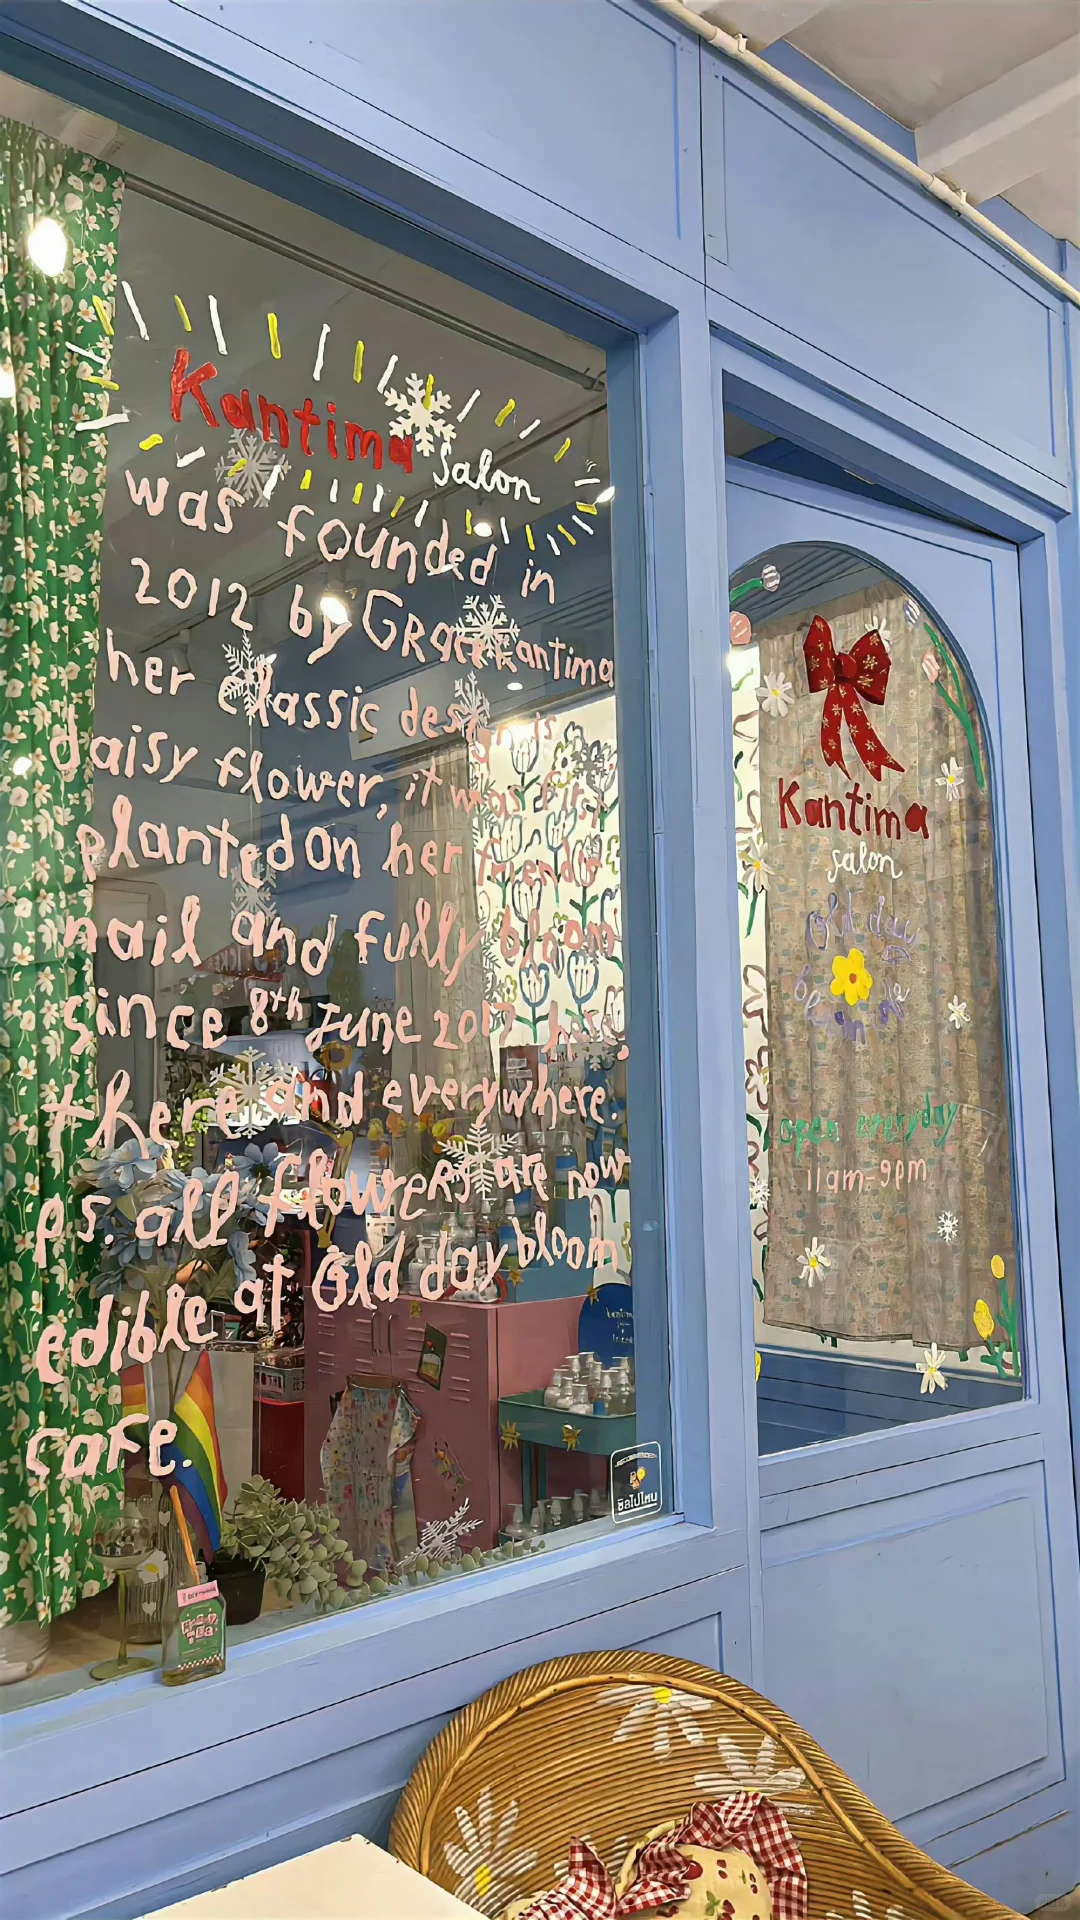 Kantima
salon
was founded in
2012 by Grace Kantima
her classic design is
daisy flower, it was first
planted on her friend's
nail and fully bloom
since 8th June 2012 here,
there and everywhere.
ps. all flowers are now
edible at Old day bloom
cafe.
Kantima
salon
Old day
open everyday
11am-9pm
ซิลไปไหน